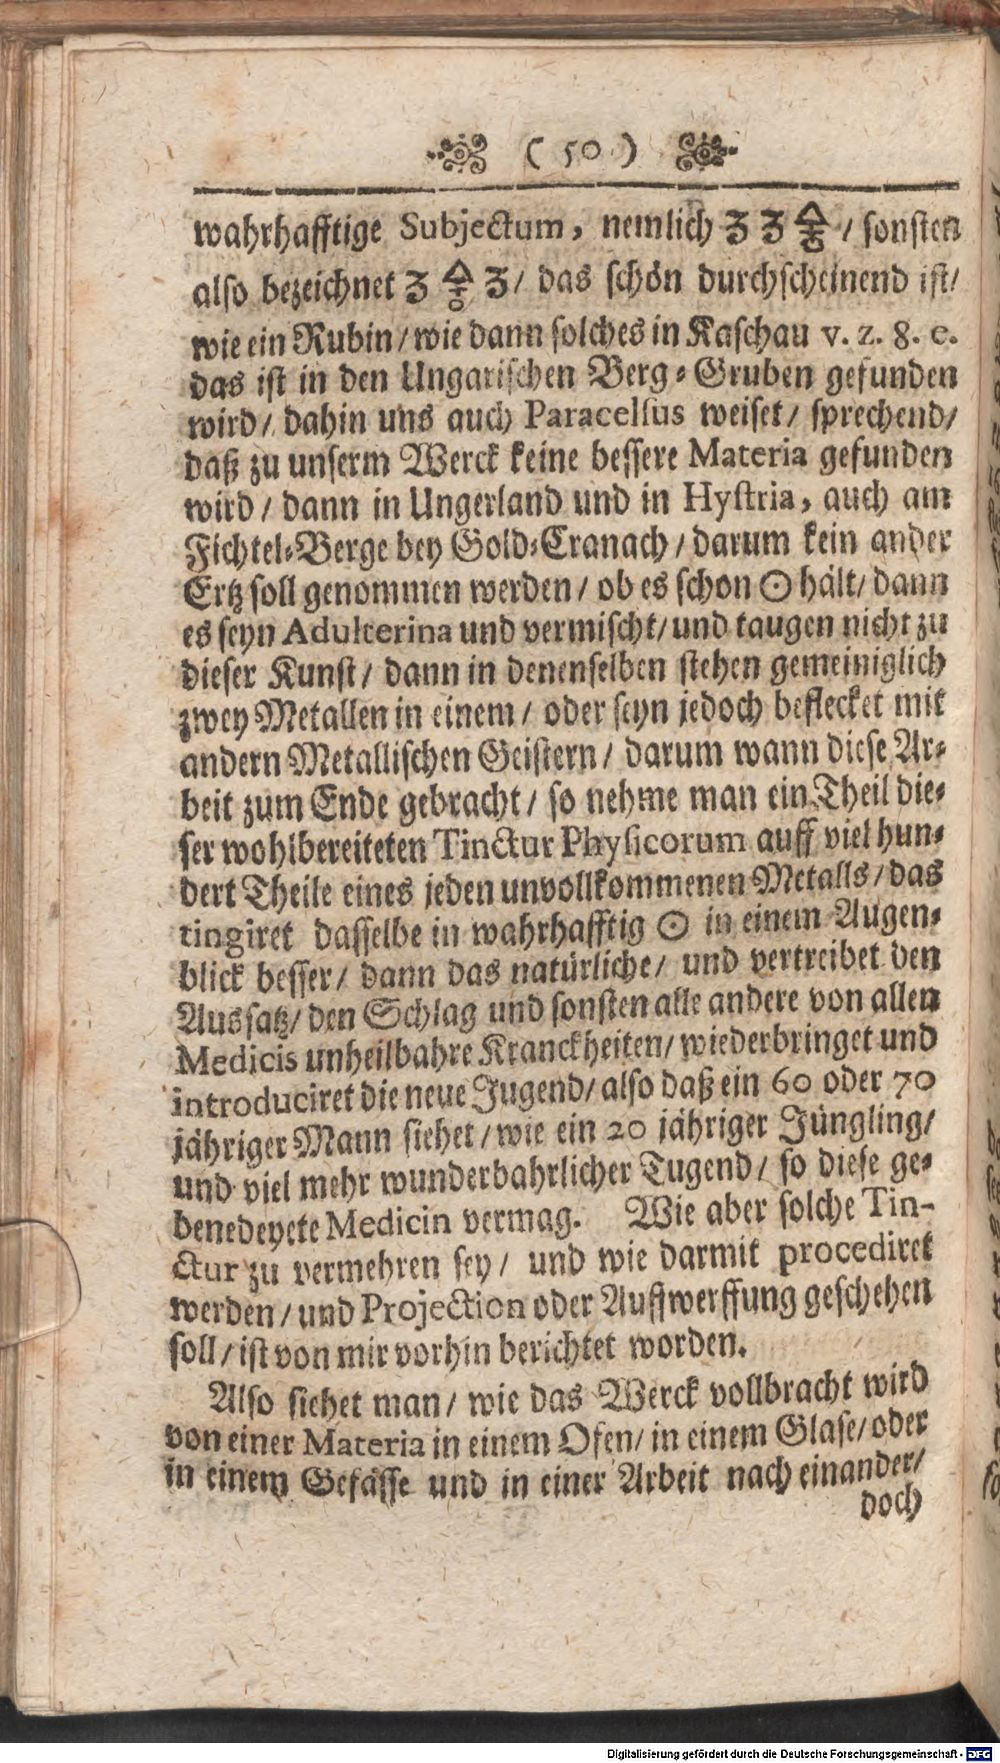 ( 50 )
wahrhafftige Subjectum, nemlich ʒ ʒ / sonsten
also bezeichnet ʒ ʒ/ das schön durchscheinend ist/
wie ein Rubin/wie dann solches in Kaschau v. z. 8. e.
das ist in den Ungarischen Berg-Gruben gefunden
wird/ dahin uns auch Paracelsus weiset/ sprechend/
daß zu unserm Werck keine bessere Materia gefunden
wird/ dann in Ungerland und in Hystria, auch am
Fichtel-Berge bey Gold-Cranach/darum kein ander
Ertz soll genommen werden/ ob es schon ☉ hält/ dann
es seyn Adulterina und vermischt/und taugen nicht zu
dieser Kunst/ dann in denenselben stehen gemeiniglich
zwey Metallen in einem/ oder seyn jedoch beflecket mit
andern Metallischen Geistern/ darum wann diese Ar-
beit zum Ende gebracht/ so nehme man ein Theil die-
ser wohlbereiteten Tinctur Physicorum auff viel hun-
dert Theile eines jeden unvollkommenen Metalls/das
tingiret dasselbe in wahrhafftig ☉ in einem Augen-
blick besser/ dann das natürliche/ und vertreibet den
Aussatz/ den Schlag und sonsten alle andere von allen
Medicis unheilbahre Kranckheiten/wiederbringet und
introduciret die neue Jugend/also daß ein 60 oder 70
jähriger Mann siehet/wie ein 20 jähriger Jüngling/
und viel mehr wunderbahrlicher Tugend/ so diese ge-
benedeyete Medicin vermag. Wie aber solche Tin-
ctur zu vermehren sey/ und wie darmit procediret
werden/und Projection oder Auffwerffung geschehen
soll/ist von mir vorhin berichtet worden.
Also siehet man/ wie das Werck vollbracht wird
von einer Materia in einem Ofen/ in einem Glase/oder
in einem Gefässe und in einer Arbeit nach einander/
doch
Digitalisierung gefördert durch die Deutsche Forschungsgemeinschaft - DFG